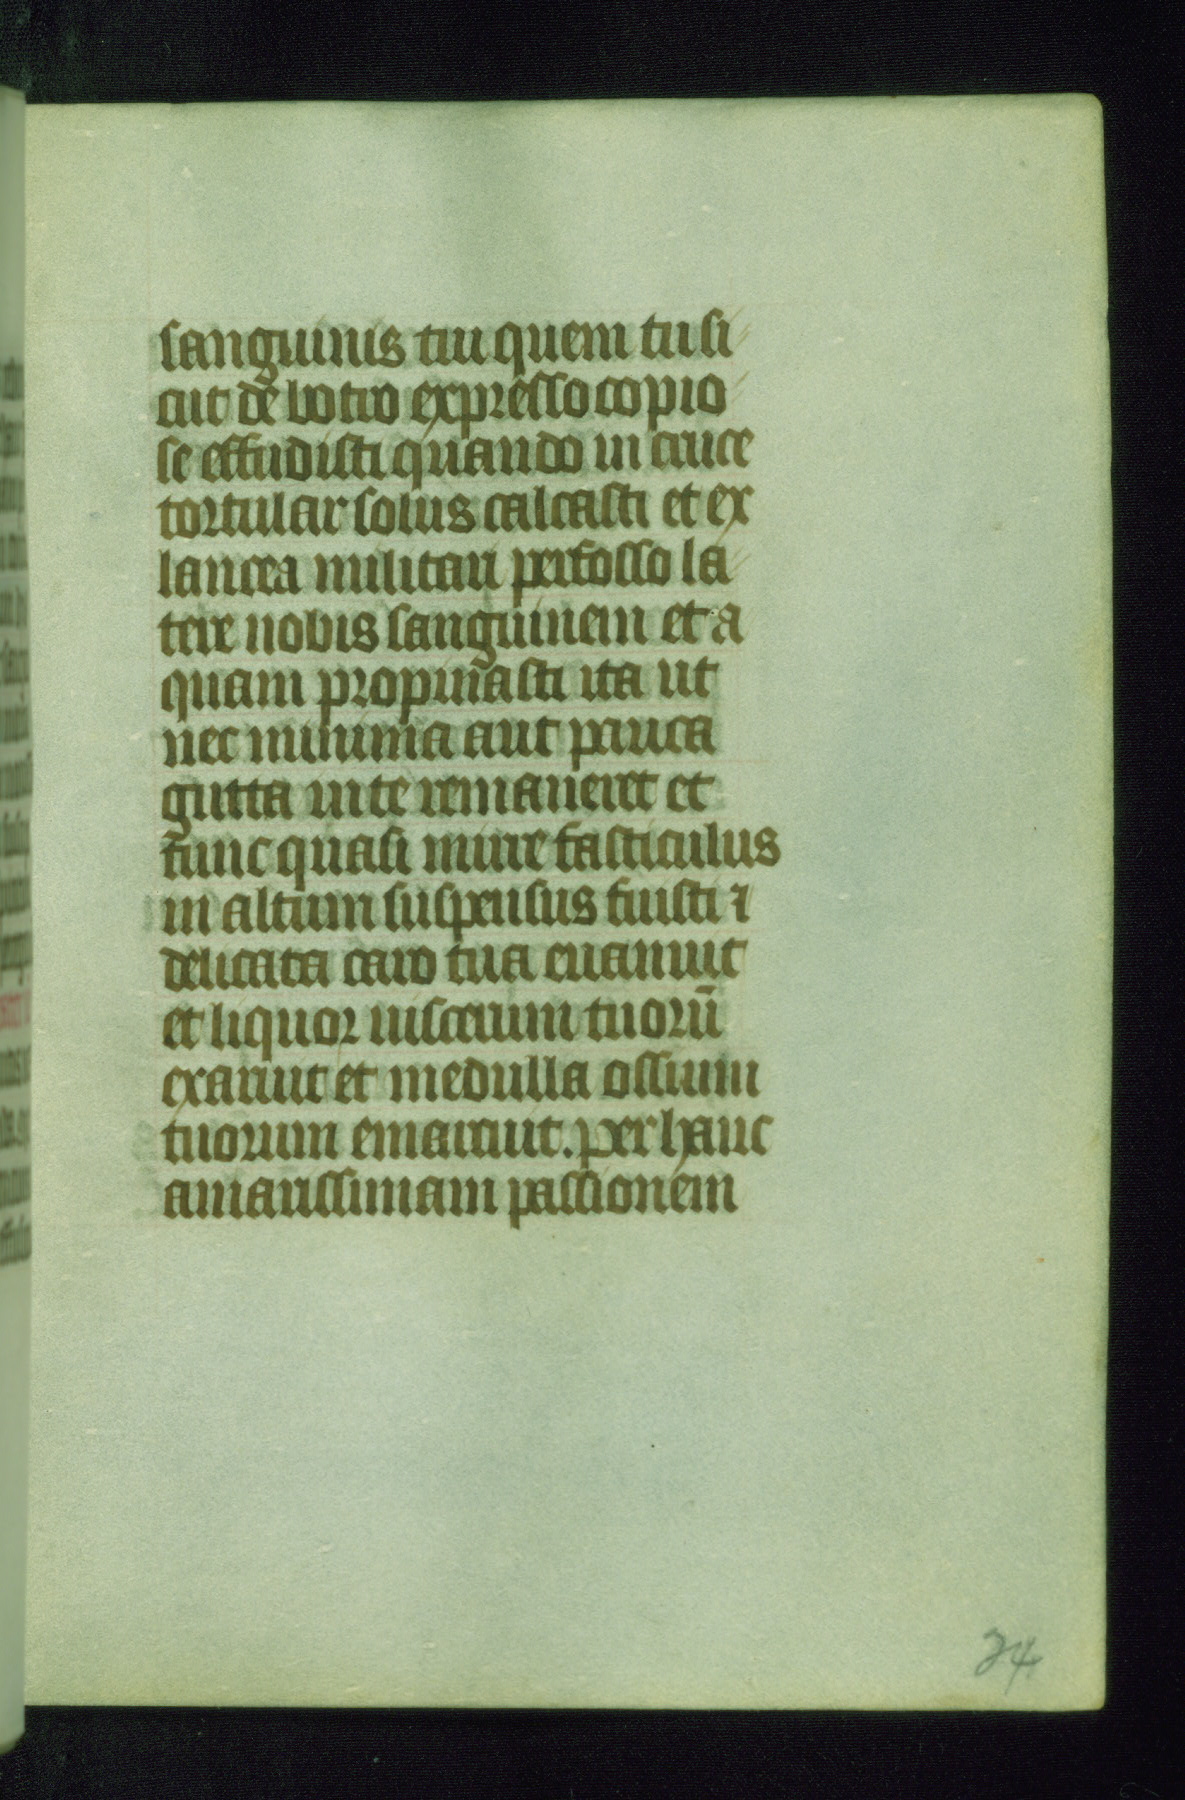 sanguinis tui quem tu si
cut de botro expresso copio
se effudisti quando in cruce
tortular solus calcasti et ex
lancea militari perfosso la
tere nobis sanguinem et a
quam propinasti ita ut
nec minima aut pauca
gutta in te remaneret et
tunc quasi mirre fasticulus
in altum suspensus fuisti ⁊
delicata caro tua euanuit
et liquor uiscerum tuorū
exariut et medulla ossium
tuorum emarcuit. per hanc
amarissimam passionem
34